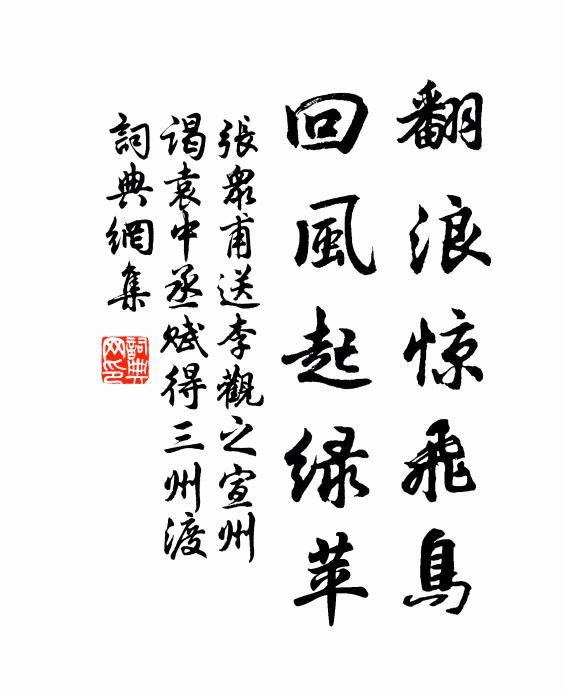 翻浪惊飛鳥
回風起绿苹
張衆甫送李觀之宣州
谒袁中丞赋得三州渡
詞典網集
詞典网印